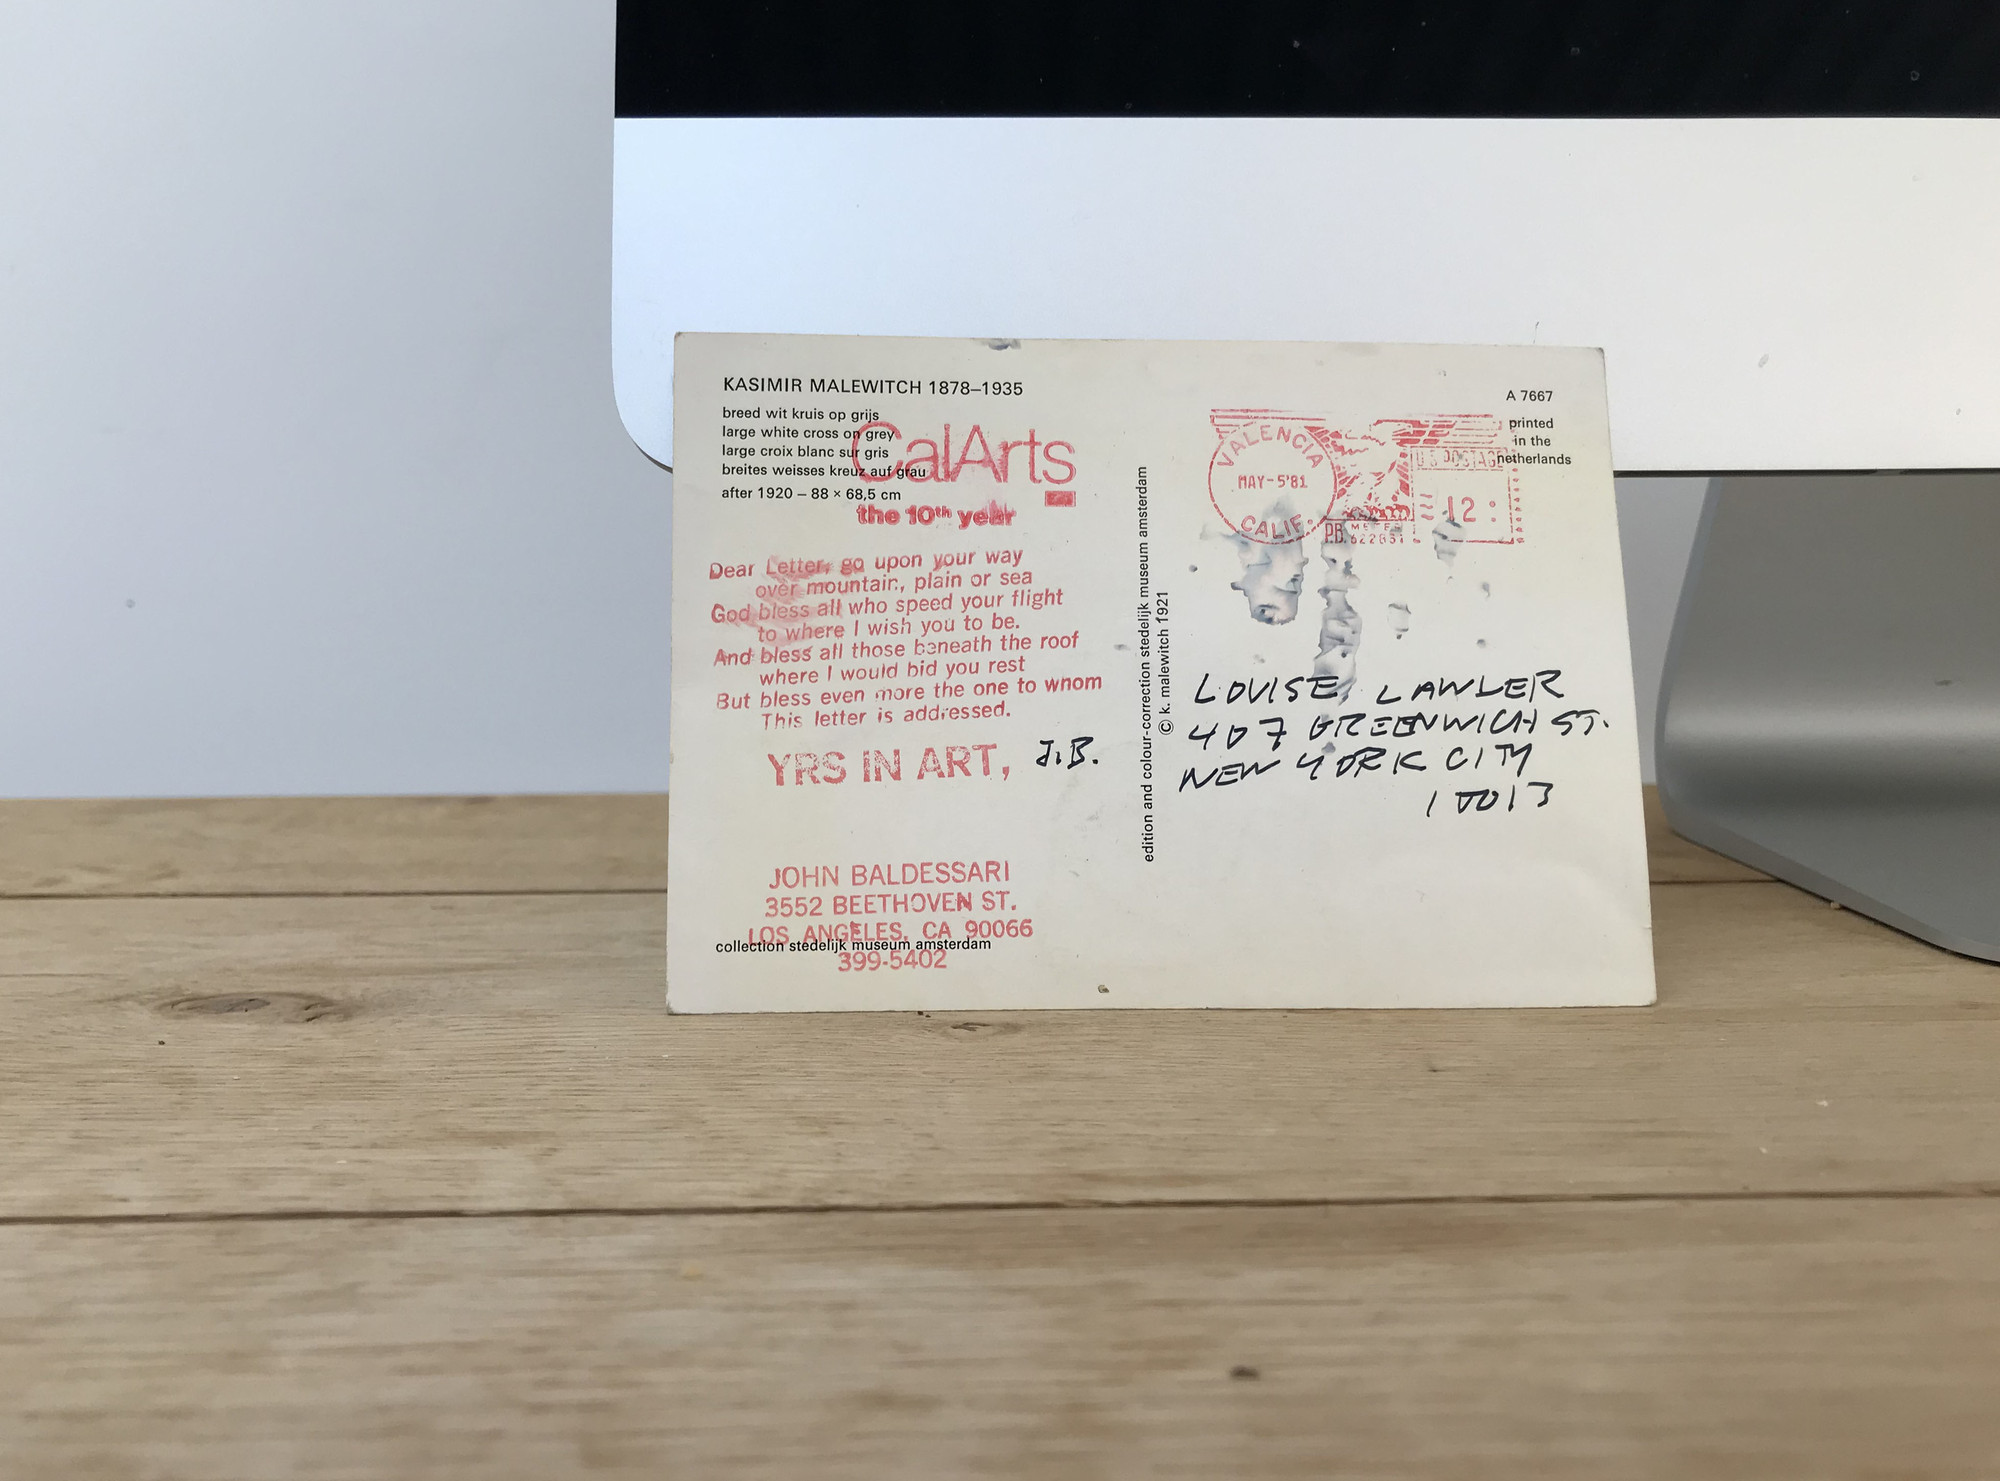 KASIMIR MALEWITCH 1878–1935
breed wit kruis op grijs
large white cross on grey
large croix blanc sur gris
breites weisses kreuz auf grau
after 1920 – 88 × 68,5 cm
CalArts
the 10th year
Dear Letter, go upon your way
over mountain, plain or sea
God bless all who speed your flight
to where I wish you to be.
And bless all those beneath the roof
where I would bid you rest
But bless even more the one to whom
This letter is addressed.
YRS IN ART, J.B.
JOHN BALDESSARI
3552 BEETHOVEN ST.
LOS ANGELES, CA 90066
collection stedelijk museum amsterdam
399-5402
edition and colour-correction stedelijk museum amsterdam
© k. malewitch 1921
A 7667
printed
in the
netherlands
VALENCIA
MAY-5'81
CALIF.
U.S. POSTAGE
12
P.B. METER
LOUISE LAWLER
407 GREENWICH ST.
NEW YORK CITY
10013